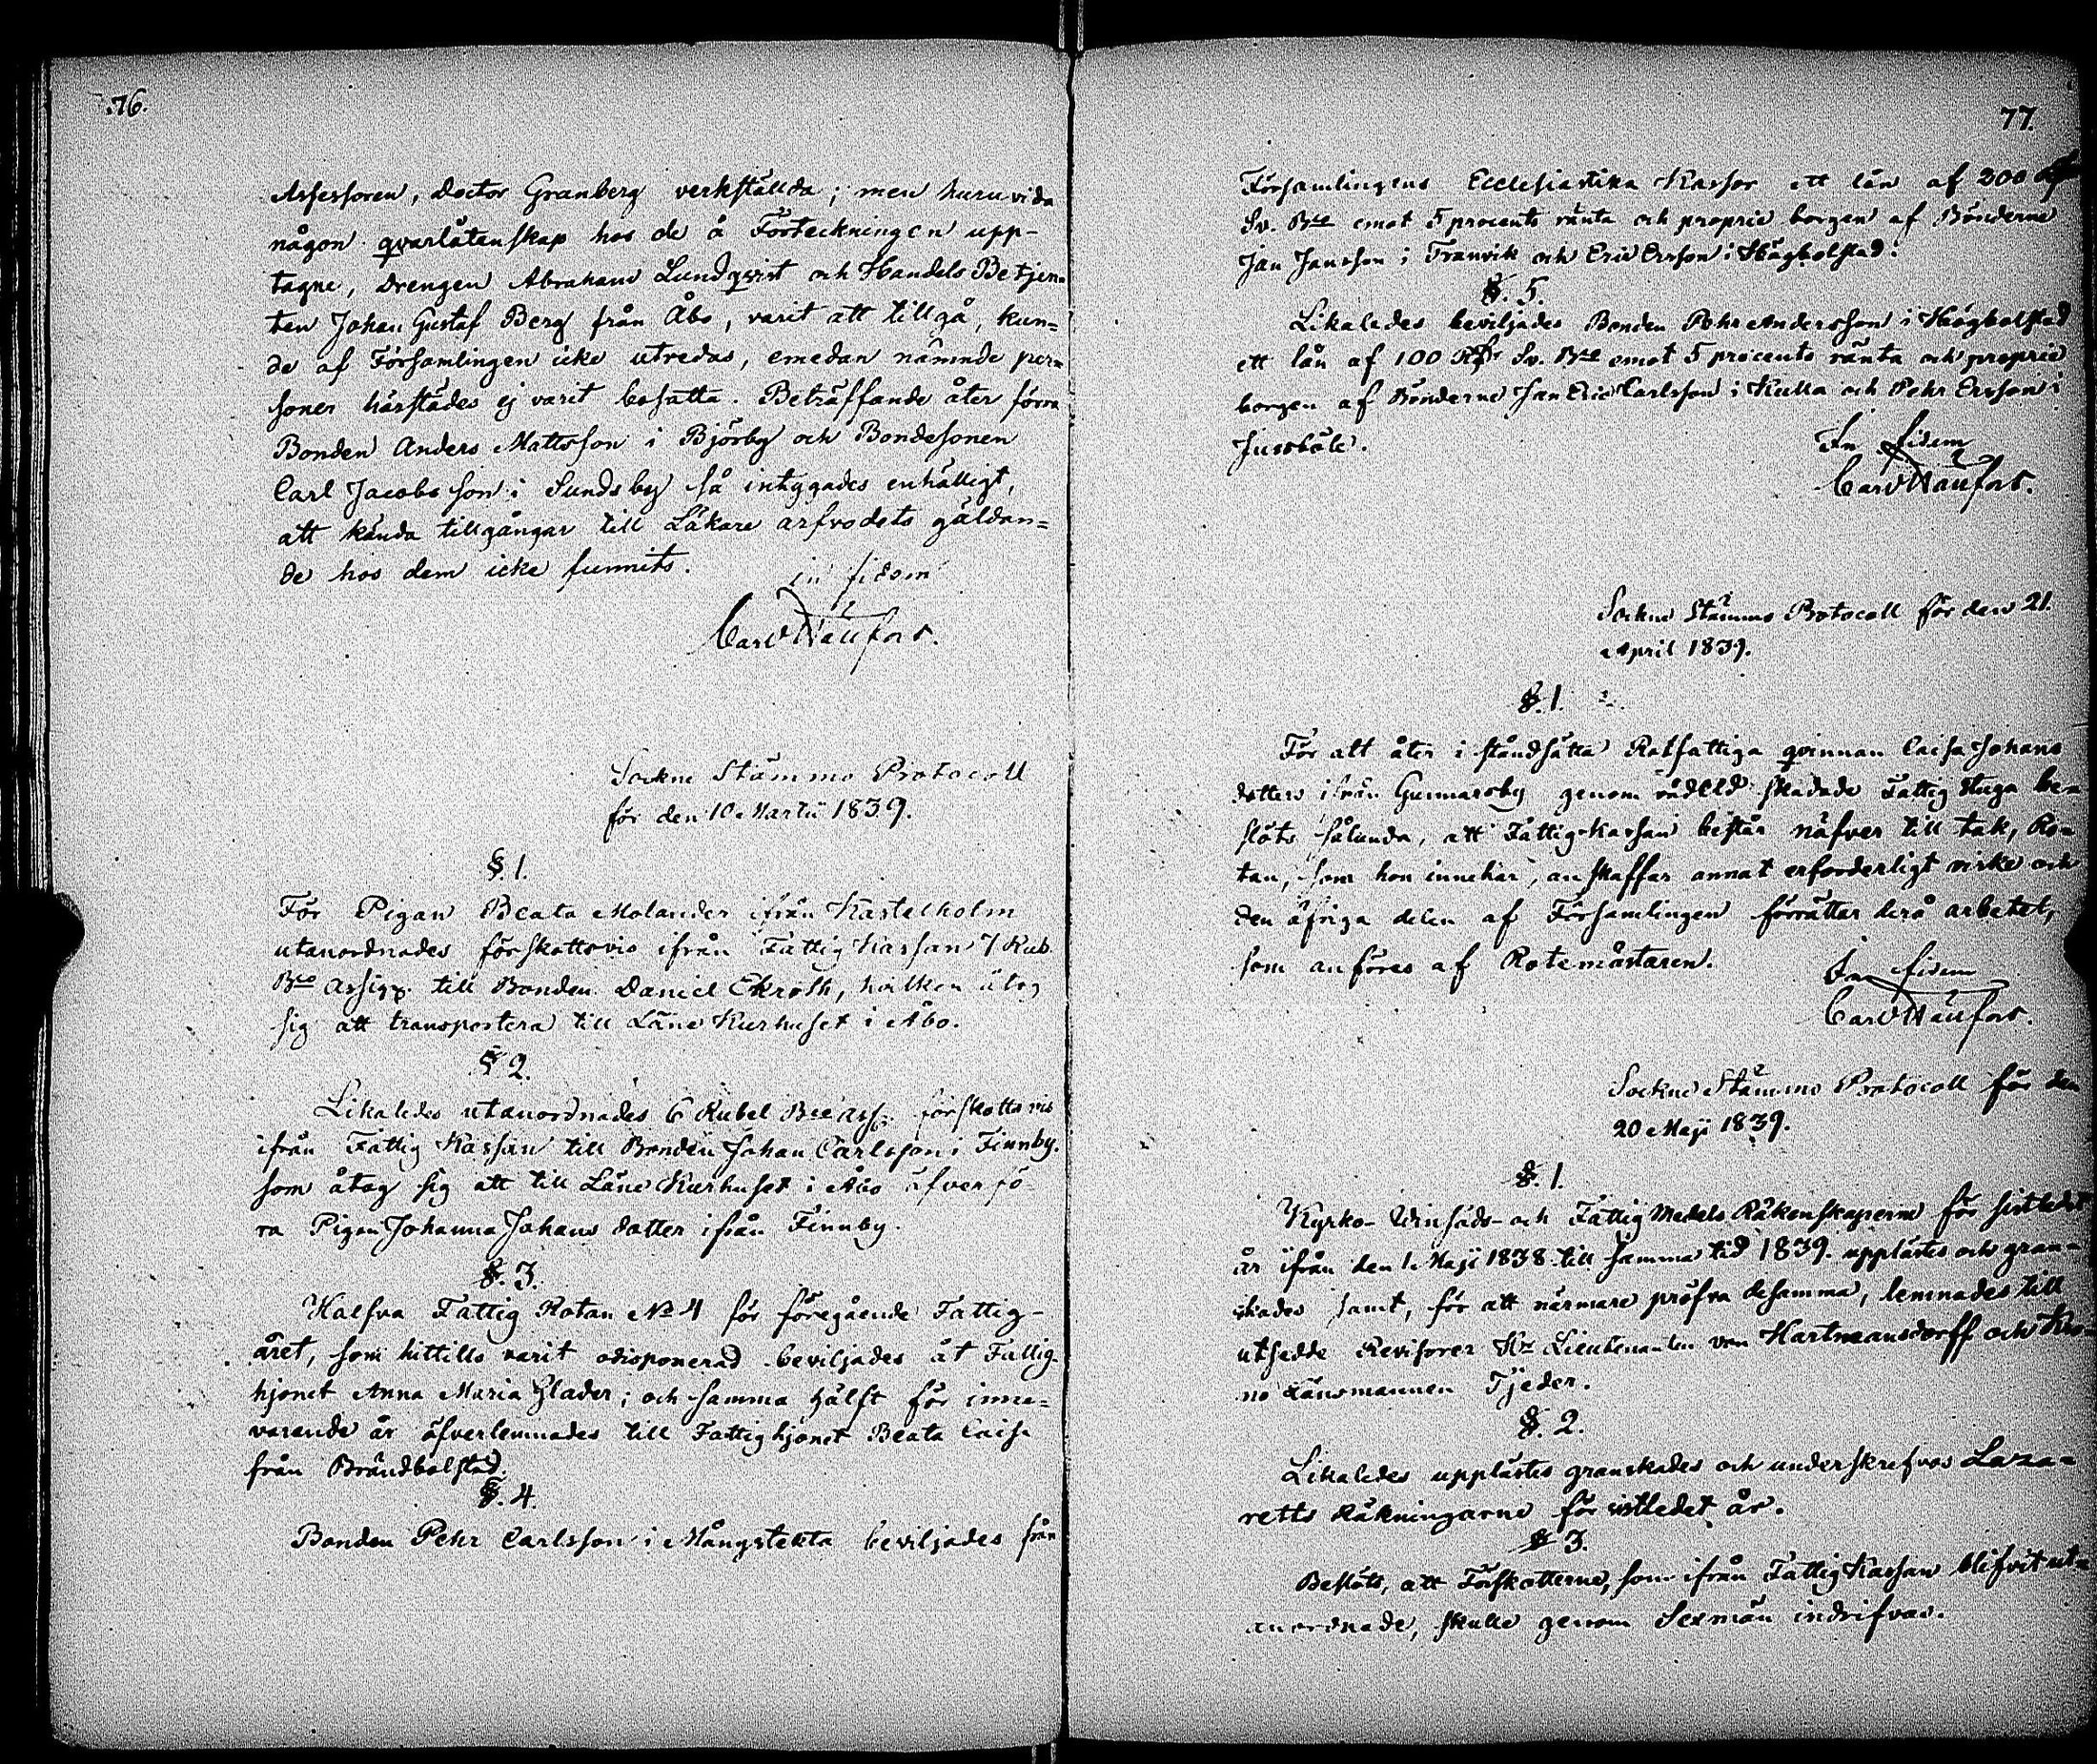 76.
Assessoren, Doctor Granberg verkställda; men huruvida
någon qvarlåtenskap hos de å Förteckningen upp-
tagne, Drengen Abraham Lundqvist och Handels Betjen=
ten Johan Gustaf Berg från Åbo, varit att tillgå, kun=
de af Församlingen icke utredas, emedan nämnde per=
soner härstädes ej varit bosatta. Beträffande åter förra
Bonden Anders Mattsson i Björby och Bondesonen
Carl Jacobsson i Sundsby så intygades enhälligt,
att kända tillgångar till Läkare arfvodets gäldan=
de hos dem icke funnits.
in fidem
Carl
Sockne Stämmo Protocoll
för den 10 Martii 1839.
§. 1.
För Pigan Beata Molander ifrån Kastelholm
utanordnades förskottsvis ifrån Fattig Kassan 7 Rub.
Bco Assig. till Bonden Daniel Ekroth, hvilken åtog
sig att transportera till Läne Kurhuset i Åbo.
§ 2.
Likaledes utanordnades 6 Rubel Bco Ass. förskottsvis
ifrån Fattig Kassan till Bonden Johan Carlsson i Finnby.
som åtog sig att till Läne Kurhuset i Åbo öfverfö
ra Pigan Johanna Johans dotter ifrån Finnby.
§. 3.
Halfva Fattig Rotan No 4 för föregående Fattig-
året, som hittills varit odisponerad beviljades åt Fattig-
hjonet Anna Maria Glader; och samma hälft för inne=
varande år öfverlemnades till Fattighjonet Beata Caisa
från Brändbolstad.
§. 4.
Bonden Pehr Carlsson i Mångstekta beviljades från
77.
Församlingens Ecclesiastika Kassor ett lån af 200
Sv. Bco emot 5 procents ränta och proprie borgen af Bönderne
Jan Jansson i Tranvik och Eric Ersson i Högbolstad.
§. 5.
Likaledes beviljades Bonden Pehr Andersson i Högbolstad
ett lån af 100 Rdr Sv. Bco emot 5 procents ränta och proprie
borgen af Bönderne Jan Eric Carlsson i Kulla och Pehr Ersson i
Jussböle.
In fidem
Carl
Sockne Stämmo Protocoll för den 21.
April 1839.
§. 1.
För att åter i ståndsätta Rotfattiga qvinnan Caisa Johans
dotters ifrån Gunnarsby genom vådeld skadade Fattig Stuga be=
slöts sålunda, att Fattig Kassan består näfver till tak, Ro=
tan, som hon innehar, anskaffar annat erforderligt virke och
den öfriga delen af Församlingen förrättar derå arbetet,
som anföres af Rotemästaren.
In fidem
Carl
Sockne Stämmo Protocoll för den
20 Maji 1839.
§. 1.
Kyrko- Vinsäds- och Fattig Medels Räkenskaperne för sistledet
år ifrån den 1. Maji 1838 till samma tid 1839. upplästes och gran=
skades samt, för att närmare pröfva desamma, lemnades till
utsedde Revisorer Hr Lieutenanten von Hartmansdorff och Kro=
no Länsmannen Tjeder.
§. 2.
Likaledes upplästes granskades och underskrefvos Laza=
retts Räkningarne för sistledet år.
§ 3.
Beslöts, att Förskotterne, som ifrån Fattig Kassan blifvit ut=
anordnade, skulle genom Sexmän indrifvas.